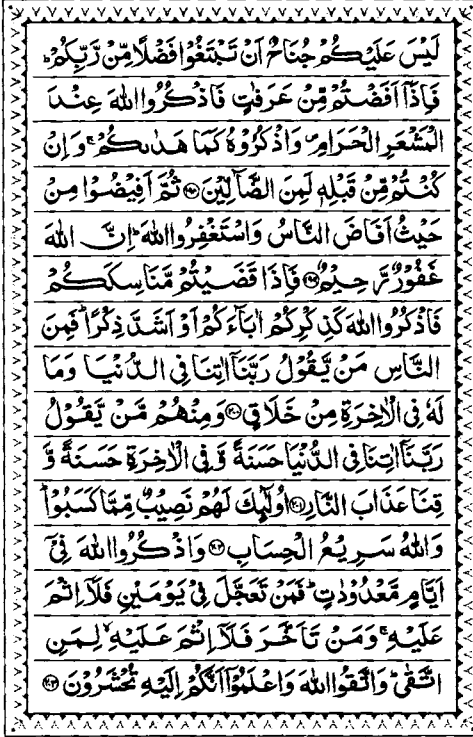 لَيْسَ عَلَيْكُمْ جُنَاحٌ اَنْ تَبْتَغُوْا فَضْلًا مِّنْ رَّبِّكُمْ ؕ
فَاِذَاۤ اَفَضْتُمْ مِّنْ عَرَفٰتٍ فَاذْكُرُوا اللّٰهَ عِنْدَ
الْمَشْعَرِ الْحَرَامِ ۪ وَاذْكُرُوْهُ كَمَا هَدٰىكُمْ ۚ وَاِنْ
كُنْتُمْ مِّنْ قَبْلِهٖ لَمِنَ الضَّآلِّيْنَ ۝۱۹۸ ثُمَّ اَفِيْضُوْا مِنْ
حَيْثُ اَفَاضَ النَّاسُ وَاسْتَغْفِرُوا اللّٰهَ ؕ اِنَّ اللّٰهَ
غَفُوْرٌ رَّحِيْمٌ ۝۱۹۹ فَاِذَا قَضَيْتُمْ مَّنَاسِكَكُمْ
فَاذْكُرُوا اللّٰهَ كَذِكْرِكُمْ اٰبَآءَكُمْ اَوْ اَشَدَّ ذِكْرًا ؕ فَمِنَ
النَّاسِ مَنْ يَّقُوْلُ رَبَّنَاۤ اٰتِنَا فِى الدُّنْيَا وَمَا
لَهٗ فِى الْاٰخِرَةِ مِنْ خَلَاقٍ ۝۲۰۰ وَمِنْهُمْ مَّنْ يَّقُوْلُ
رَبَّنَاۤ اٰتِنَا فِى الدُّنْيَا حَسَنَةً وَّفِى الْاٰخِرَةِ حَسَنَةً وَّ
قِنَا عَذَابَ النَّارِ ۝۲۰۱ اُولٰٓئِكَ لَهُمْ نَصِيْبٌ مِّمَّا كَسَبُوْا ؕ
وَاللّٰهُ سَرِيْعُ الْحِسَابِ ۝۲۰۲ وَاذْكُرُوا اللّٰهَ فِىْۤ
اَيَّامٍ مَّعْدُوْدٰتٍ ؕ فَمَنْ تَعَجَّلَ فِىْ يَوْمَيْنِ فَلَاۤ اِثْمَ
عَلَيْهِ ۚ وَمَنْ تَاَخَّرَ فَلَاۤ اِثْمَ عَلَيْهِ ۙ لِمَنِ
اتَّقٰى ؕ وَاتَّقُوا اللّٰهَ وَاعْلَمُوْۤا اَنَّكُمْ اِلَيْهِ تُحْشَرُوْنَ ۝۲۰۳